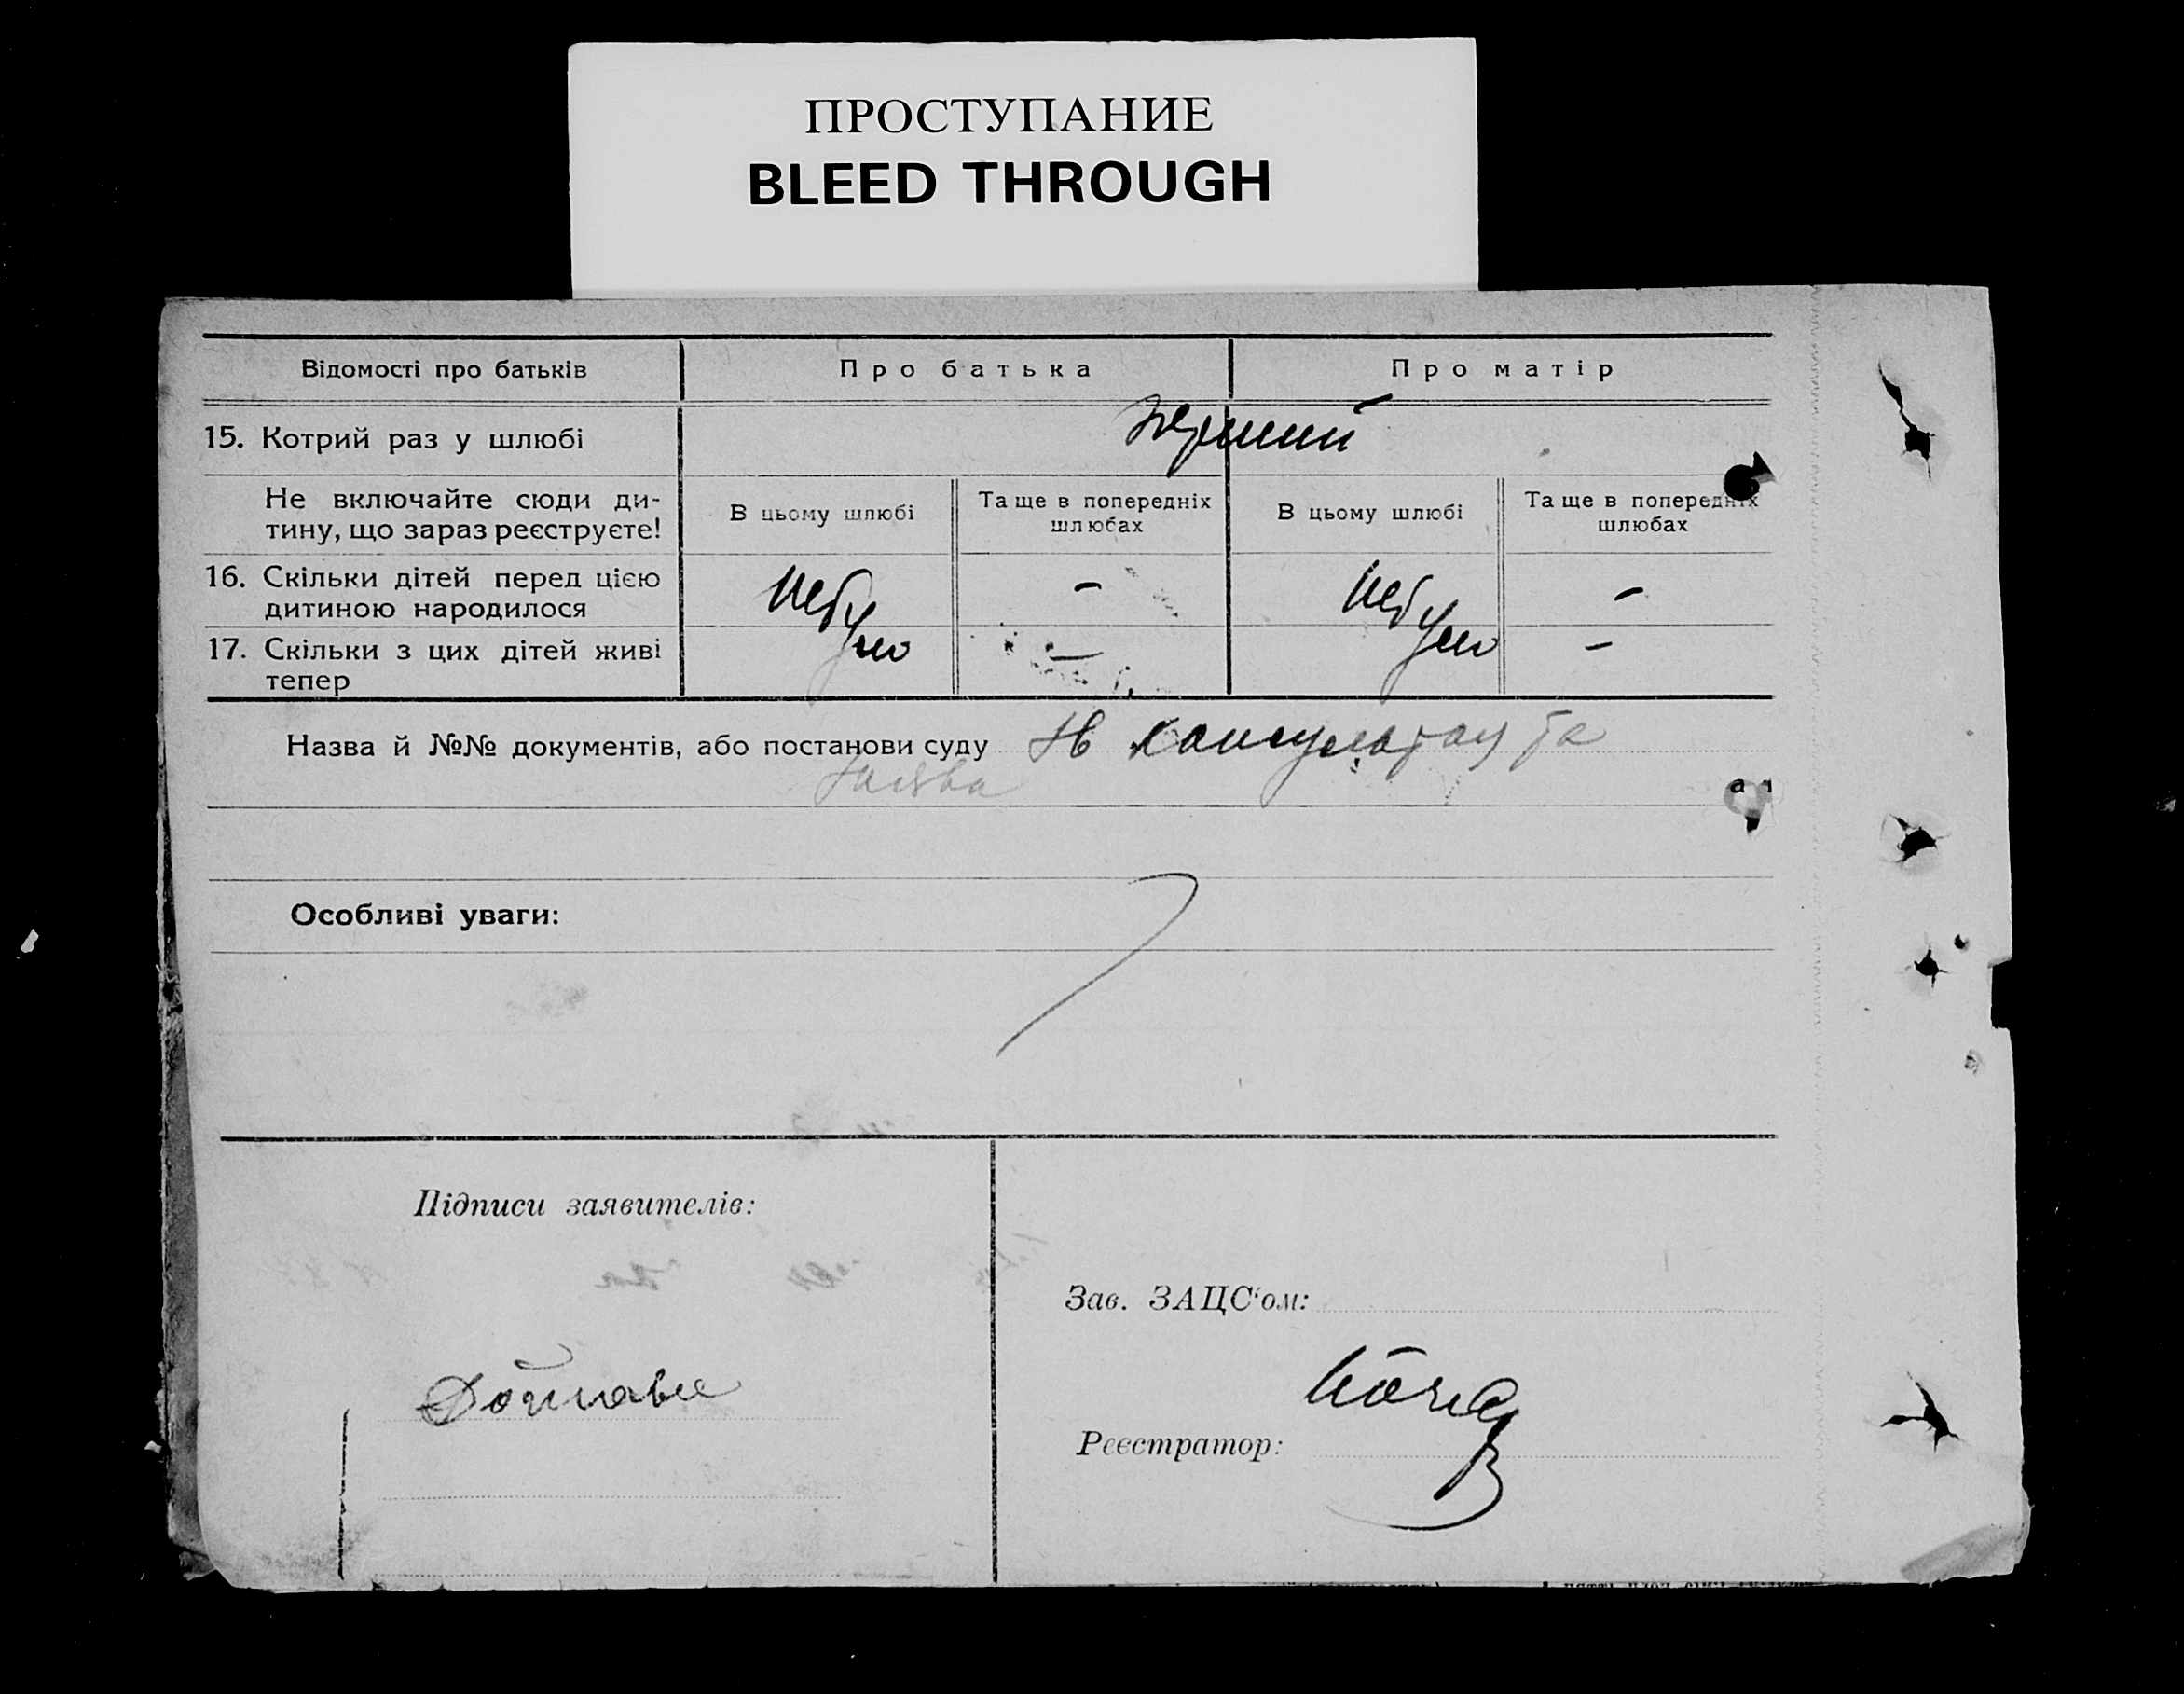 ПРОСТУПАНИЕ
BLEED THROUGH
Відомості про батьків
Про батька
Про матір
15. Котрий раз у шлюбі
перший
Не включайте сюди ди-
тину, що зараз реєструєте!
В цьому шлюбі
Та ще в попередніх
шлюбах
В цьому шлюбі
Та ще в попередніх
шлюбах
16. Скільки дітей перед цією
дитиною народилося
небуло
–
небуло
–
17. Скільки з цих дітей живі
тепер
–
–
Назва й №№ документів, або постанови суду
та
Особливі уваги:
Підписи заявителів:
Зав. ЗАЦС‘ом:
Реєстратор: